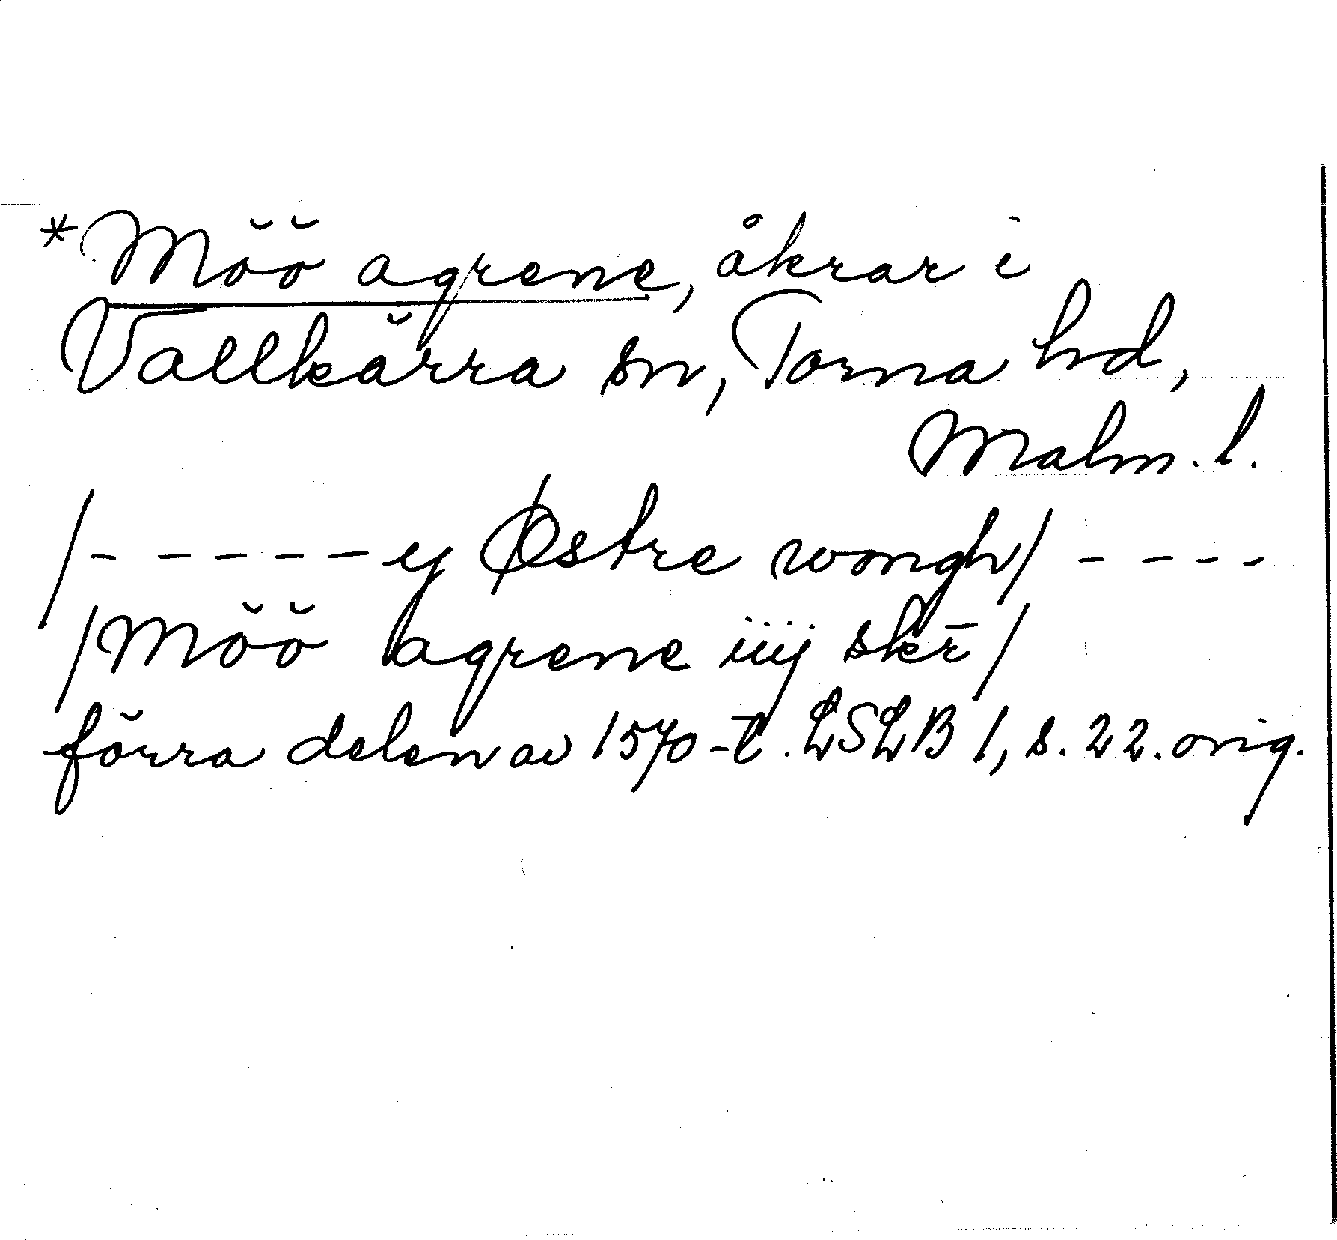 *Möö agrene, åkrar i
Vallkärra sn, Torna hd,
Malm. l.
/- - - - - - ey Østre wongh/ - - - -
/Möö agrene iiij skr̄/
förra delen av 1570-t. LSLB 1, s. 22. orig.